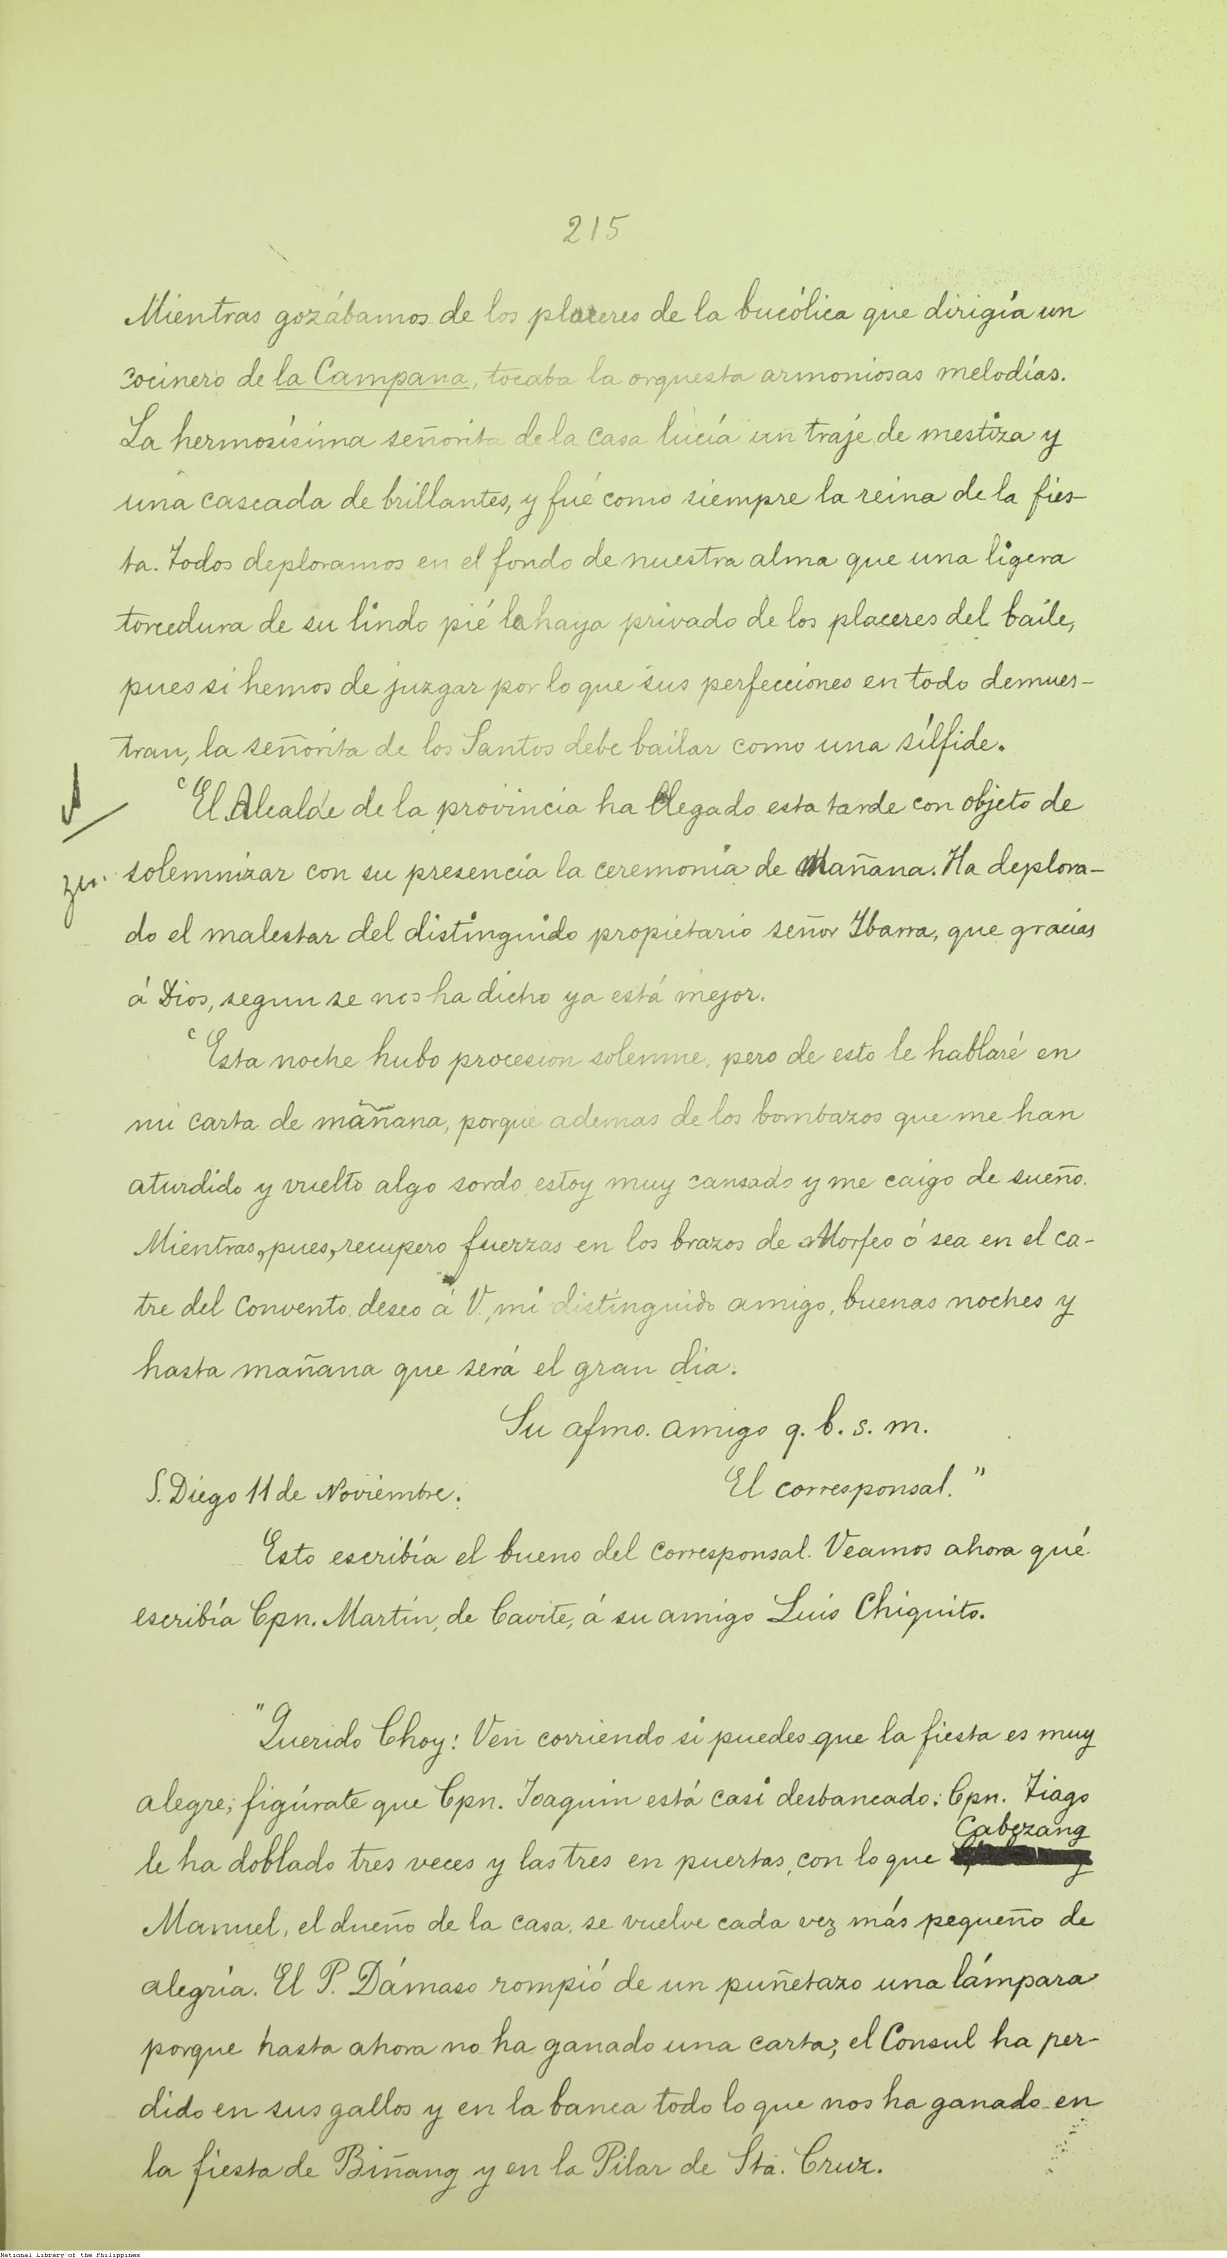 215
Mientras gozábamos de los placeres de la bucólica que dirigía un
cocinero de la Campana, tocaba la orquesta armoniosas melodías.
La hermosísima señorita de la casa lucía un traje de mestiza y
una cascada de brillantes, y fué como siempre la reina de la fies-
ta. Todos deploramos en el fondo de nuestra alma que una ligera
torcedura de su lindo pié la haya privado de los placeres del baile,
pues si hemos de juzgar por lo que sus perfecciones en todo demues-
tran, la señorita de los Santos debe bailar como una sílfide.
"El Alcalde de la provincia ha llegado esta tarde con objeto de
solemnizar con su presencia la ceremonia de mañana. Ha deplora-
do el malestar del distinguido propietario señor Ibarra, que gracias
á Dios, segun se nos ha dicho ya está mejor.
"Esta noche hubo procesion solemne, pero de esto le hablaré en
mi carta de mañana, porque ademas de los bombazos que me han
aturdido y vuelto algo sordo estoy muy cansado y me caigo de sueño.
Mientras, pues, recupero fuerzas en los brazos de Morfeo ó sea en el ca-
tre del Convento, deseo á V., mi distinguido amigo, buenas noches y
hasta mañana que será el gran dia.
Su afmo. amigo q. b. s. m.
El corresponsal."
S. Diego 11 de Noviembre.
Esto escribía el bueno del corresponsal. Veamos ahora qué
escribía Cpn. Martin, de Cavite, á su amigo Luis Chiquito.
"Querido Choy: Ven corriendo si puedes que la fiesta es muy
alegre; figúrate que Cpn. Joaquin está casi desbancado: Cpn. Tiago
Cabezang
le ha doblado tres veces y las tres en puertas, con lo que
Manuel, el dueño de la casa, se vuelve cada vez más pequeño de
alegría. El P. Dámaso rompió de un puñetazo una lámpara
porque hasta ahora no ha ganado una carta; el Consul ha per-
dido en sus gallos y en la banca todo lo que nos ha ganado en
la fiesta de Biñang y en la Pilar de Sta. Cruz.
National Library of the Philippines